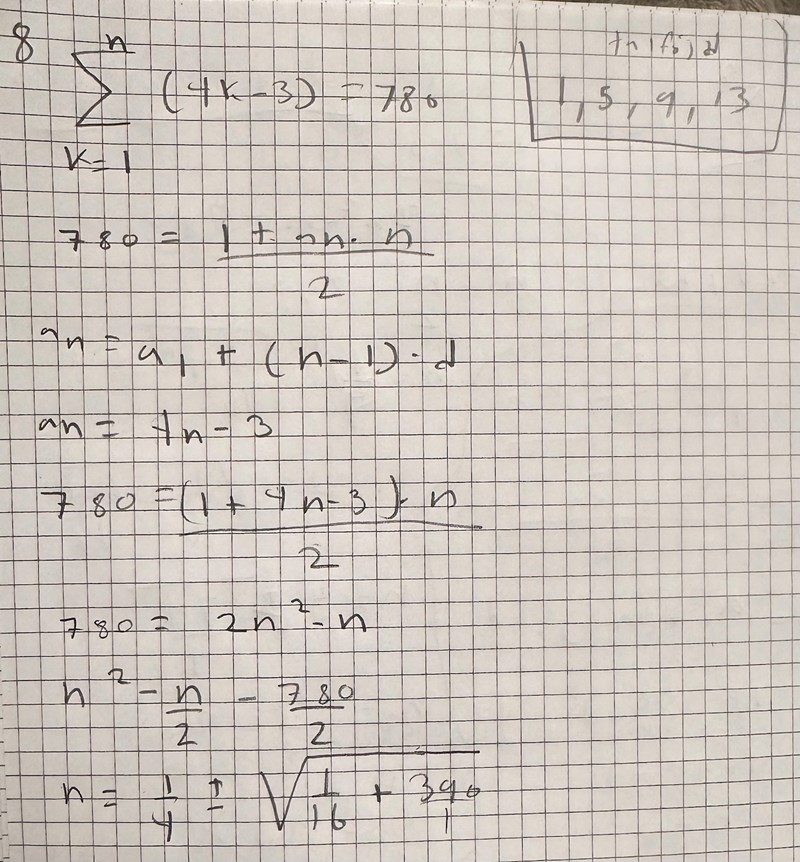 8 n
∑ (4k-3) = 780
k=1
1, 5, 9, 13
780 = 1 + an · n / 2
an = a1 + (n-1) · d
an = 4n - 3
780 = (1 + 4n-3) · n / 2
780 = 2n² - n
n² - n/2 - 780/2
n = 1/4 ± √(1/16 + 390/1)